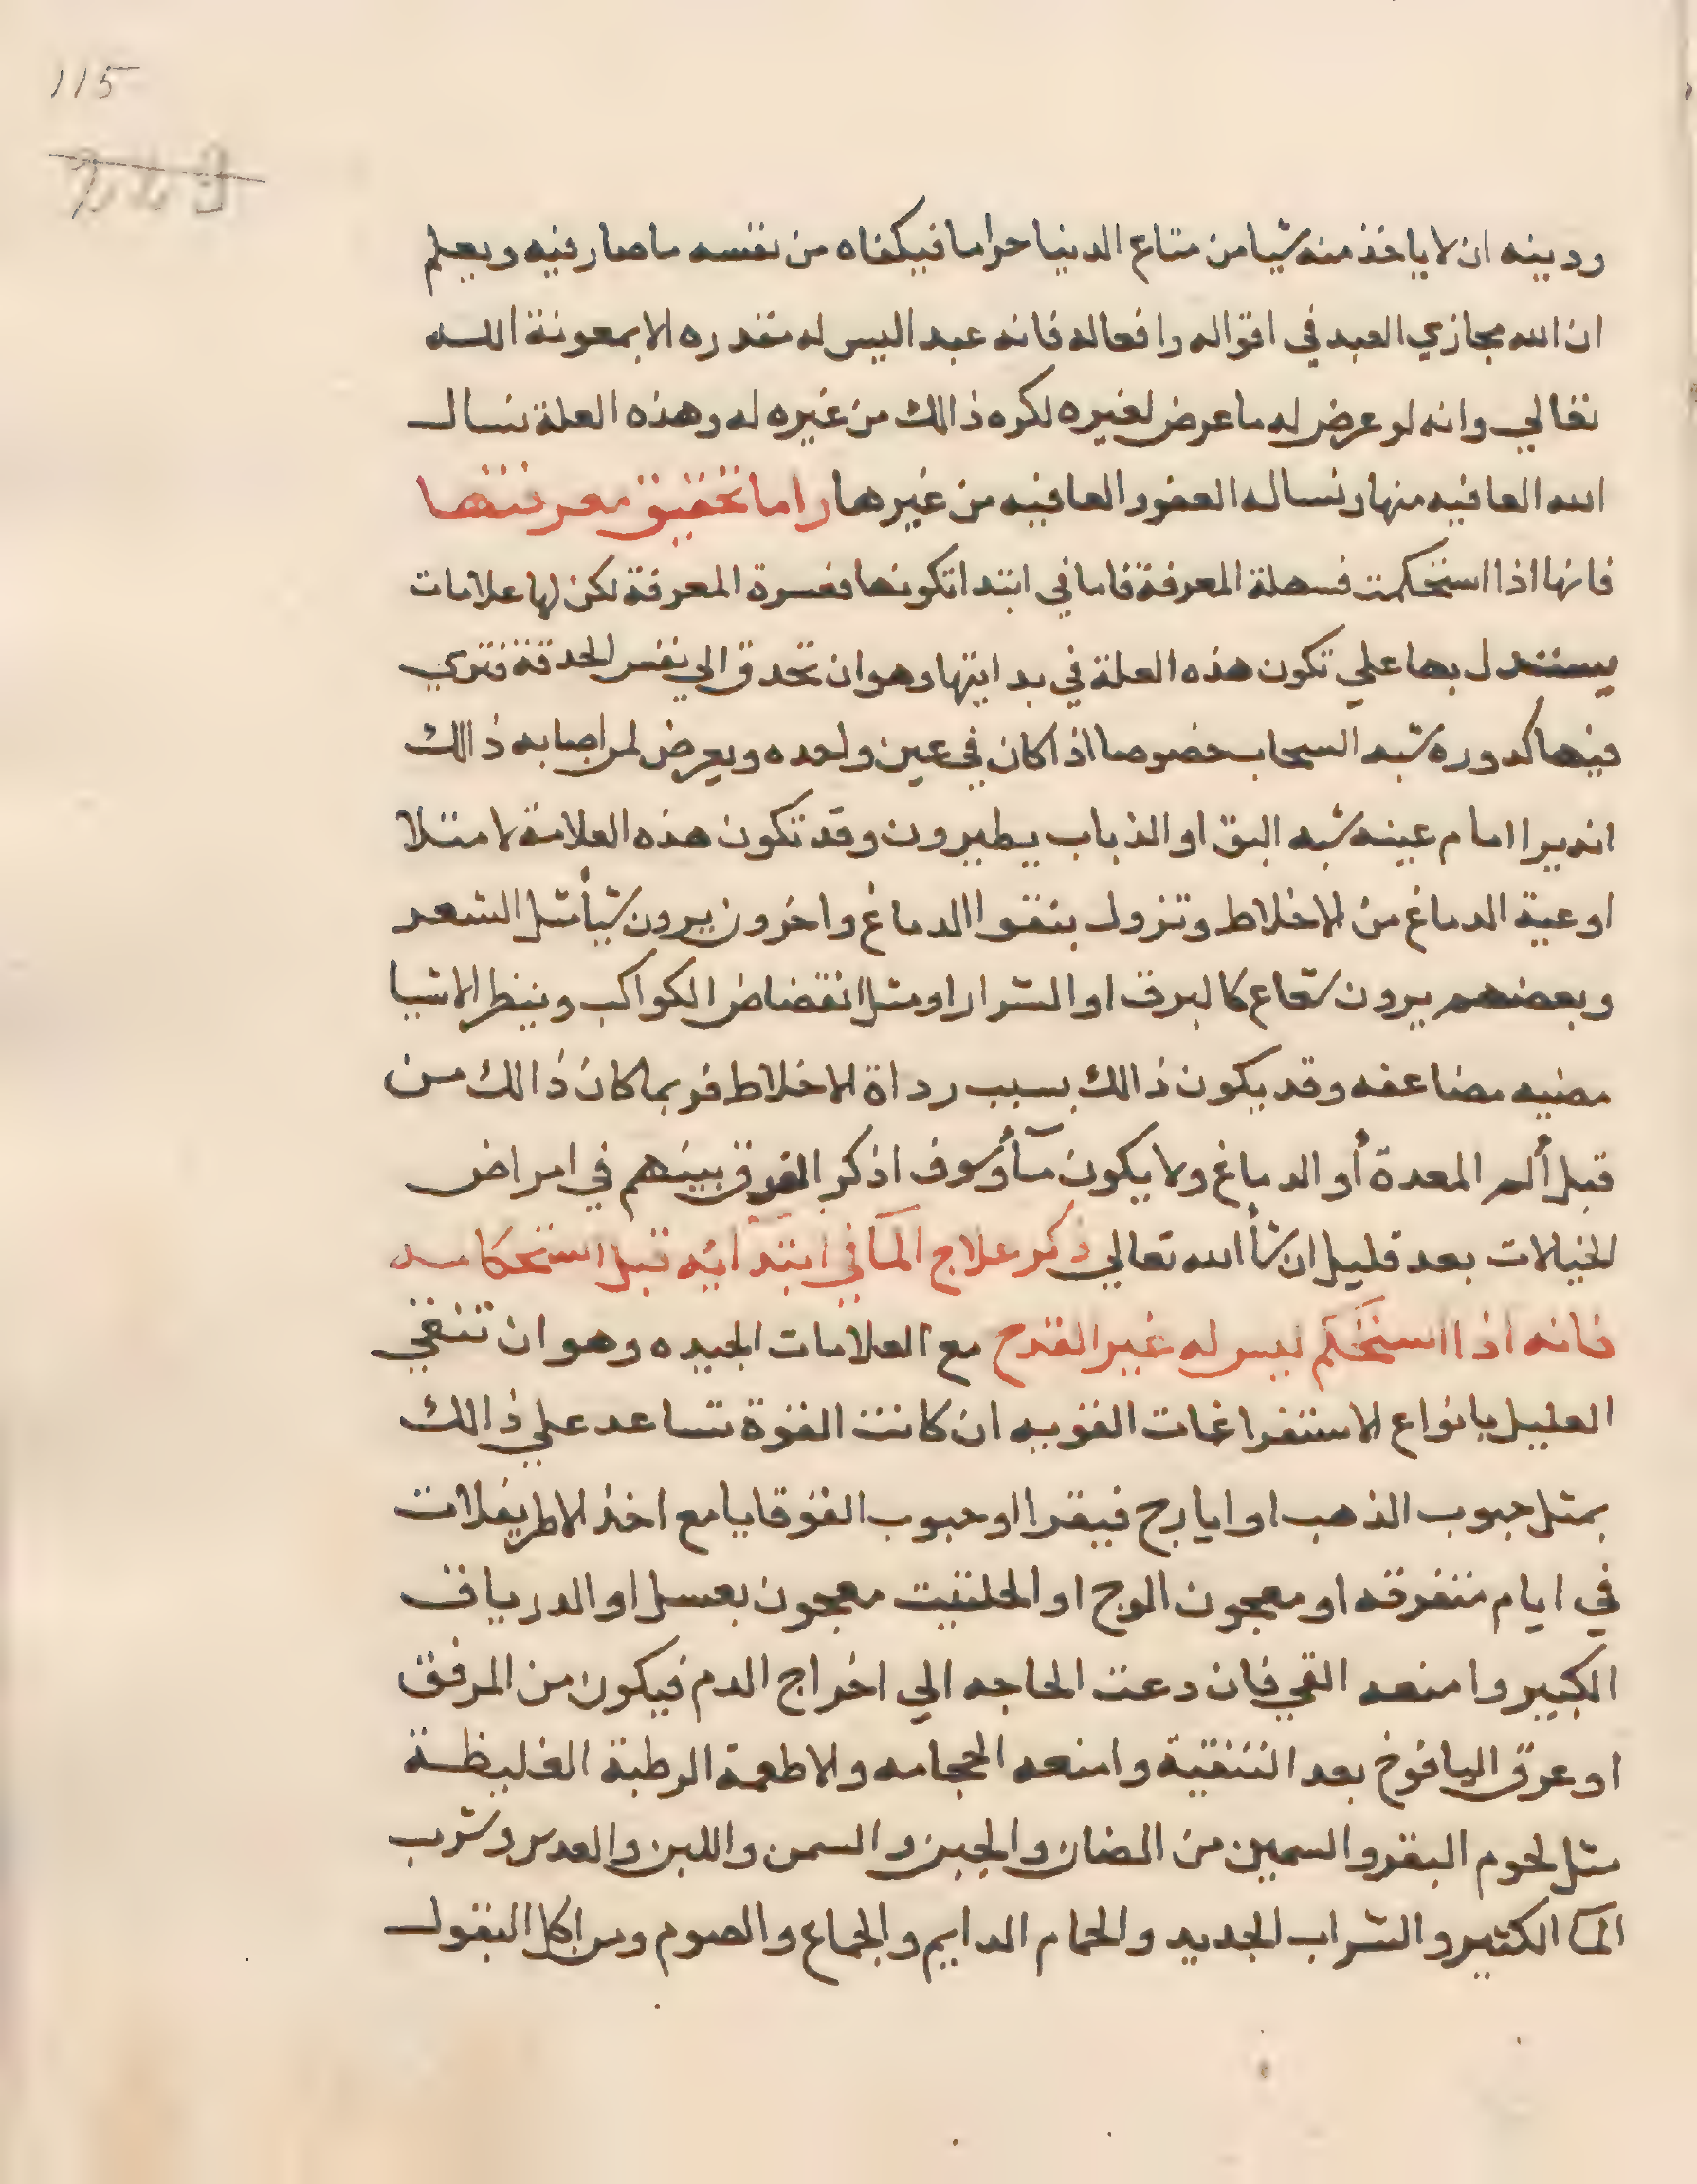 115
ودينه ان لا ياخذ منه شيا من متاع الدنيا حراما فيكفاه من نفسه ما صار فيه ويعلم
ان الله مجازي العبد في اقواله وافعاله فانه عبد اليس له مقدره الا بمعونة الله
تعالي وانه لو عرض له ما عرض لغيره لكره ذالك من غيره له وهذه العلة نسال
الله العافيه منها ونساله العفو والعافيه من غيرها واما تحقيق معرفتها
فانها اذا استحكمت فسهلة المعرفة فاما في ابتدا تكونها فعسرة المعرفة لكن لها علامات
يستدل بها علي تكون هذه العلة في بدايتها وهو ان تحدق الي نفس الحدقة فتري
فيها كدوره شبه السحاب خصوصا اذا كان في عين واحده ويعرض لمن اصابه ذالك
انه يرا امام عينه شبه البق او الذباب يطيرون وقد تكون هذه العلامة لامتلا
اوعية الدماغ من الاخلاط وتزول بنقوا الدماغ واخرون يرون شيأ مثل الشعر
وبعضهم يرون شعاع كالبرق او الشرار او مثل انقضاض الكواكب وينظر الاشيا
مضيه مضاعفه وقد يكون ذالك بسبب رداة الاخلاط فربما كان ذالك من
قبل ألم المعدة أو الدماغ ولا يكون مآ وسوف اذكر الفرق بينهم في امراض
الخيالات بعد قليل ان شأ الله تعالي ذكر علاج المآ في ابتدآيه قبل استحكامه
فانه اذا استحكم ليس له غير القدح مع العلامات الجيده وهو ان تنقي
العليل بانواع الاستفراغات القويه ان كانت القوة تساعد علي ذالك
بمثل حبوب الذهب او ايارج فيقرا او حبوب القوقايا مع اخذ الاطريفلات
في ايام متفرقه او معجون الوج او الحلتيت معجون بعسل او الدرياق
الكبير وامنعه القي فان دعت الحاجه الي اخراج الدم فيكون من المرفق
او عرق اليافوخ بعد التنقية وامنعه الحجامه والاطعمة الرطبة الغليظة
مثل لحوم البقر والسمين من الضان والجبن والسمن واللبن والعدس وشرب
المآ الكثير والشراب الجديد والحمام الدايم والجماع والصوم ومن اكل البقول